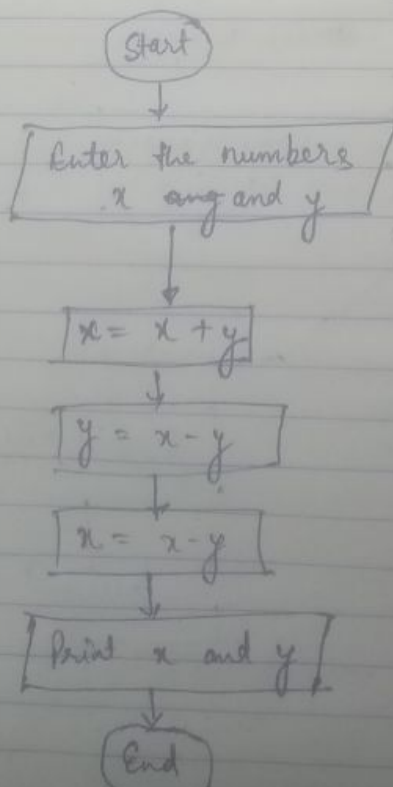 Start
Enter the numbers
x and y
x = x + y
y = x - y
x = x - y
Print x and y
End